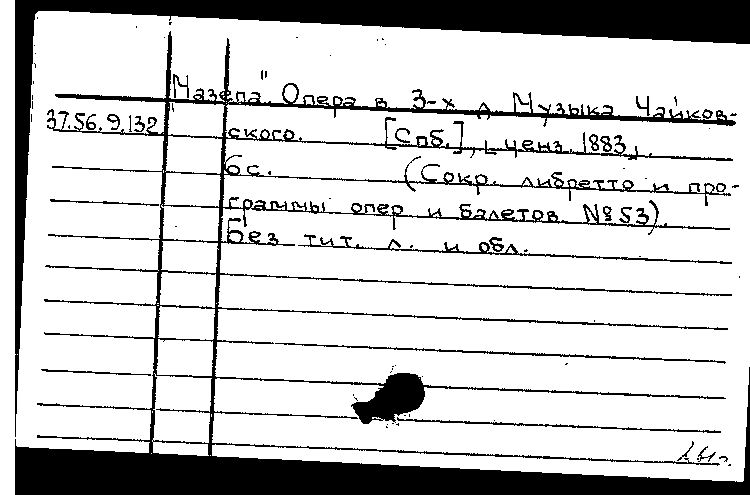 "Мазепа" Опера в 3-х д. Музыка Чайков-
37.56.9.132 ского. [Спб.], [ценз. 1883].
6с. (Сокр. либретто и про-
граммы опер и балетов. № 53).
Без тит. л. и обл.